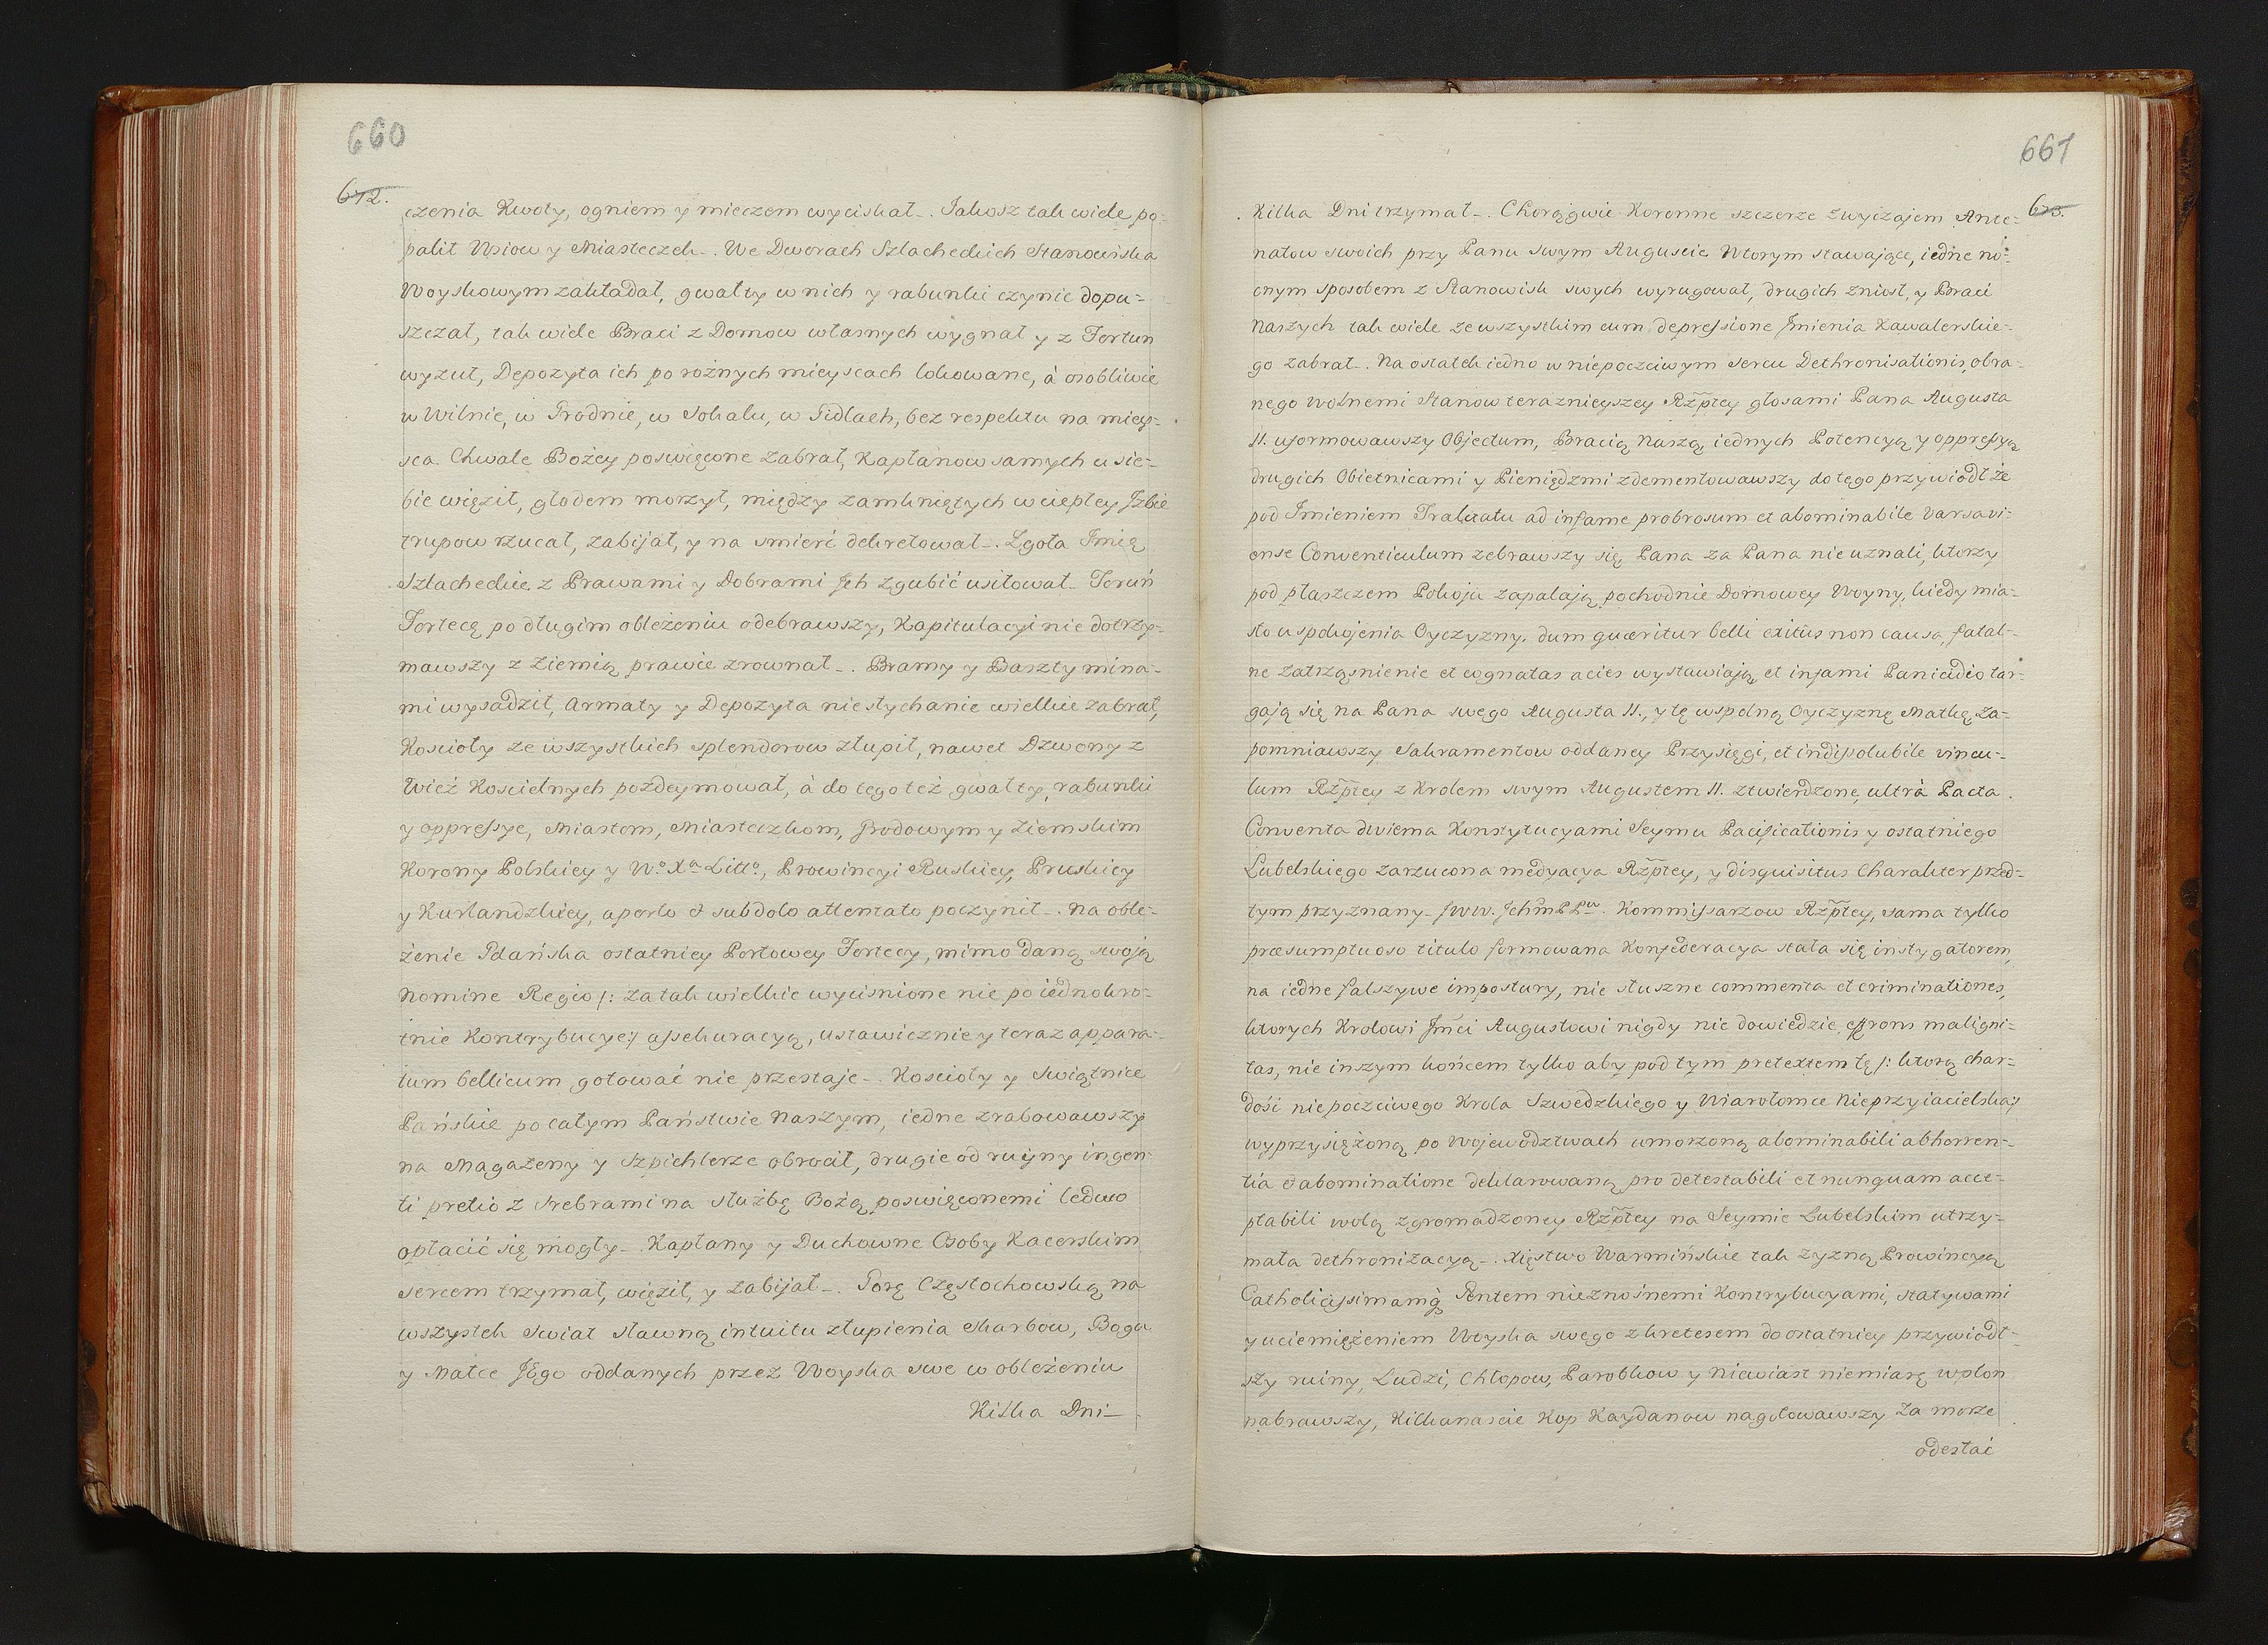 660
672.
czenia Kwoty, ogniem y mieczem wyciskał_. Jakosz tak wiele po=
palił Wsiow y Miasteczek_. We Dworach Szlacheckich Stanowiska
Woyskowym zakładał, gwałty w nich y rabunki czynic dopu=
szczał, tak wiele Braci z Domow własnych wygnał y z Fortun
wyzuł, Depozyta ich po rożnych mieyscach lokowane, à osobliwie
w Wilnie, w Grodnie, w Sokalu, w Gidlach, bez respektu na miey=
sca Chwale Bożey poswięcone zabrał, Kapłanow samych u sie=
bie więził, głodem morzył, między zamkniętych w ciepłey Jzbie
trupow rzucał, zabijał, y na smierć dekretował_. Zgoła Jmię
Szlacheckie z Prawami y Dobrami Jch zgubić usiłował_ Toruń
Fortecę po długim obleżeniu odebrawszy, Kapitulacyi nie dotrzy=
mawszy z ziemią prawie zrownał_. Bramy y Baszty mina=
mi wysadził, Armaty y Depozyta niesłychanie wielkie zabrał,
Koscioły ze wszystkich splendorow złupił, nawet Dzwony z
Wież Koscielnych pozdeymował, à do tego też gwałty, rabunki
y oppressye, Miastom, Miasteczkom, Grodowym y Ziemskim
Korony Polskiey y Wo. Xa Litto., Prowincyi Ruskiey, Pruskiey
y Kurlandzkiey, aperto et subdolo attentato poczynił_. Na oble=
żenie Gdańska ostatniey Portowey Fortecy, mimo daną swoją
Nomine Regio /: za tak wielkie wycisnione nie po iednokro=
tnie Kontrybucye :/ assekuracyą, ustawicznie y teraz appara=
tum bellicum gotować nie przestaje_. Koscioły y Swiątnice
Pańskie po całym Państwie Naszym, iedne zrabowawszy
na Magazeny y Szpichlerze obrocił, drugie od ruiny ingen=
ti pretio z Srebrami na służbę Bożą poswięconemi ledwo
opłacić się mogły_. Kapłany y Duchowne Osoby Kacerskim
sercem trzymał, więził, y zabijał_. Gorę Częstochowską na
wszystek Swiat sławną intuitu złupienia Skarbow, Bogu
y Matce JEgo oddanych przez Woyska swe w obleżeniu
Kilka Dni_
661
673.
Kilka Dni trzymał_. Chorągwie Koronne szczerze zwyczajem Ante=
natow swoich przy Panu swym Auguscie Wtorym stawające, iedne no=
cnym sposobem z Stanowisk swych wyrugował, drugich zniosł, y Braci
Naszych tak wiele ze wszystkim cum depressione Jmienia Kawalerskie=
go zabrał_. Na ostatek iedno w niepoczciwym sercu Dethronisationis, obra=
nego wolnemi Stanow teraznieyszey Rzptey głosami Pana Augusta
II. uformowawszy Objectum, Bracią Naszą iednych Potencyą y oppressyą
drugich Obietnicami y Pieniędzmi zdementowawszy do tego przywiodł że
pod Jmieniem Traktatu ad infame probrosum et abominabile Varsavi=
ense Conventiculum zebrawszy się Pana za Pana nie uznali, ktorzy
pod płaszczem Pokoju zapalają pochodnie Domowey Woyny, kiedy mia=
sto uspokojenia Oyczyzny. dum quæritur belli exitus non causa, fatal=
ne zatrząsnienie et cognatas acies wystawiają et infami Panicidio tar=
gają się na Pana swego Augusta II., y tę wspolną Oyczyznę Matkę, za=
pomniawszy Sakramentow oddaney Przysięgi, et indissolubile vincu=
lum Rzptey z Krolem swym Augustem II. ztwierdzone, ultrà Pacta
Conventa dwiema Konstytucyami Seymu Pacificationis y ostatniego
Lubelskiego zarzucona medyacya Rzptey, y disquisitus Charakter przed=
tym przyznany_ JWW. Jchm PPw. Kommissarzow Rzptey, sama tylko
præsumptuoso titulo formowana Konfederacya stała się instygatorem,
na iedne fałszywe impostury, nie słuszne commenta et criminationes,
ktorych Krolowi Jmci Augustowi nigdy nie dowiedzie, effrons maligni=
tas, nie inszym końcem tylko aby pod tym pretextem tę /: ktorą char=
dości niepoczciwego Krola Szwedzkiego y Wiarołomce Nieprzyiacielska :/
wyprzysiężoną po Wojewodztwach umorzoną abominabili abhorren=
tia et abominatione deklarowaną pro detestabili et nunquam acce=
ptabili wolą zgromadzoney Rzptey na Seymie Lubelskim utrzy=
mała dethronizacyą_. Xięstwo Warmińskie tak żyzną Prowincyą
Catholicissimamq Antem nieznosnemi Kontrybucyami, statywami
y uciemiężeniem Woyska swego z kretesem do ostatniey przywiodł=
szy ruiny, Ludzi, Chłopow, Parobkow y Niewiast niemiarę w plon
nabrawszy, Kilkanascie Kop Kaydanow nagotowawszy za morze
odesłać